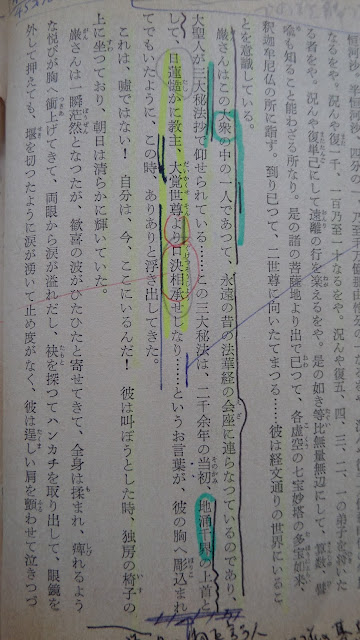 なるをや。況んや復一千、一百乃至一十なるをや。況んや復五、四、三、二、一の弟子を将いた
る者をや。況んや復単己にして遠離の行を楽えるをや。是の如き等比無量無辺にして、算数、譬
喩も知ること能わざる所なり。是の諸の菩薩地より出で已つて、各虚空の七宝妙塔の多宝如来、
釈迦牟尼仏の所に詣ず。到り已つて、二世尊に向いたてまつる……彼は経文通りの世界にいるこ
とを意識している。
巌さんはこの大衆の中の一人であつて、永遠の昔の法華経の会座に連らなつているのであり、
大聖人が三大秘法抄で仰せられている……この三大秘法は、二千余年の当初、地涌千界の上首と
して、日蓮慥かに教主、大覚世尊より口決相承せしなり……というお言葉が、彼の胸へ彫込まれ
てでもいたように、この時、ありありと浮き出してきた。
これは、嘘ではない！　自分は、今、ここにいるんだ！　彼は叫ぼうとした時、独房の椅子の
上に坐つており、朝日は清らかに輝いていた。
巌さんは一瞬茫然となつたが、歓喜の波がひたひたと寄せてきて、全身は揉まれ、痺れるよう
な悦びが胸へ衝上げてきて、両眼から涙が溢れだし、袂を探つてハンカチを取り出して、眼鏡を
外して押えても、堰を切つたように涙が湧いて止め度がなく、彼は逞しい肩を顫わせて泣きつづ